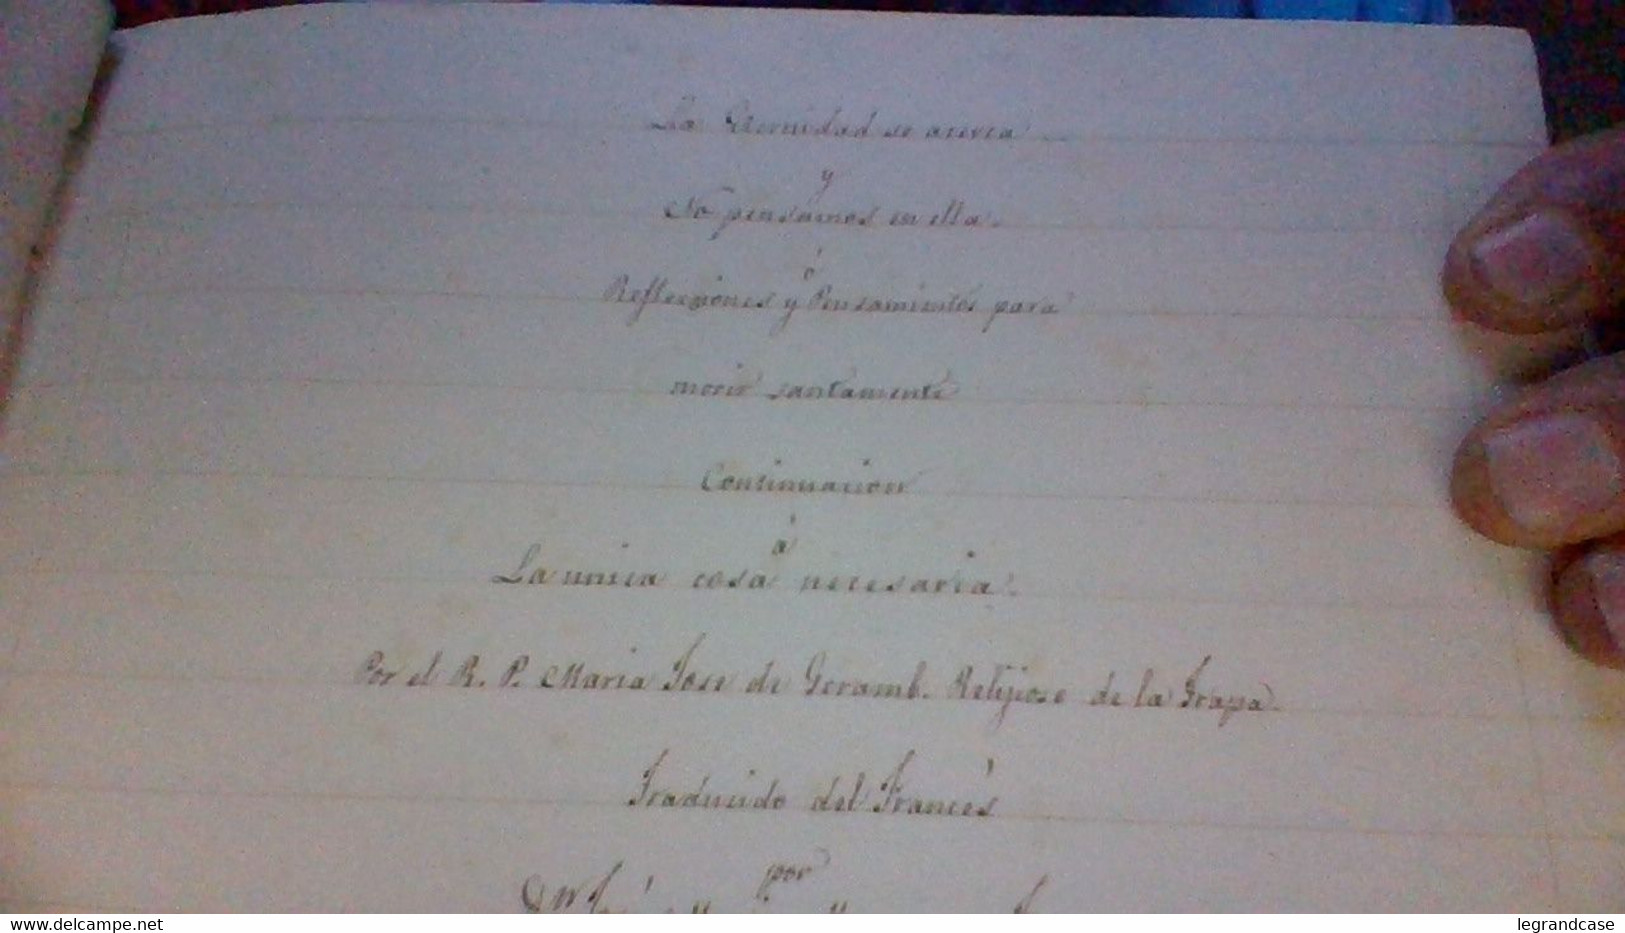 La Eternidad se acerca
y
No pensamos en ella.
ó
Reflecsiones y Pensamientos para
morir santamente
Continuacion
á
La unica cosa necesaria.
Por el R. P. Maria Jose de Geramb. Relijioso de la Trapa.
Traducido del Francés
por
delcampe.net
legrandcase